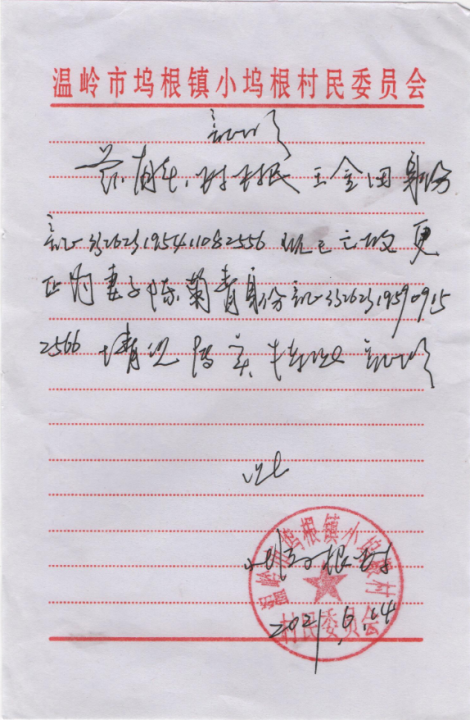 温岭市坞根镇小坞根村民委员会
证明
兹有本村村民王金田身份
证332623195411082556现已亡故更
正为妻子陈菊青身份证33262319590915
2566情况属实特此证明
此
小坞根村
2021.6.24
温岭市坞根镇小坞根村
村民委员会